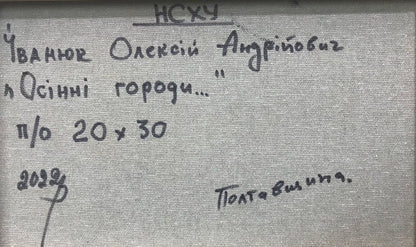 НСХУ
Іванюк Олексій Андрійович
"Осінні городи..."
п/о 20 х 30
2022р
Полтавщина.